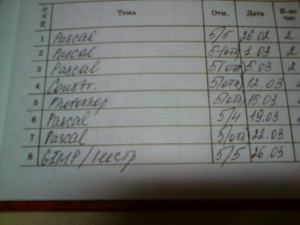 № п/п Тема Отм. Дата К-во час
1 Pascal 5/5 26.02 2
2 Pascal 5/отл 1.03 2
3 Pascal 5/отл 5.03 2
4 5/отл 12.03 2
5 Photoshop 5/отл 15.03
6 Pascal 5/4 19.03 2
7 Pascal 5/отл 22.03
8 GIMP/реестр 5/5 26.03